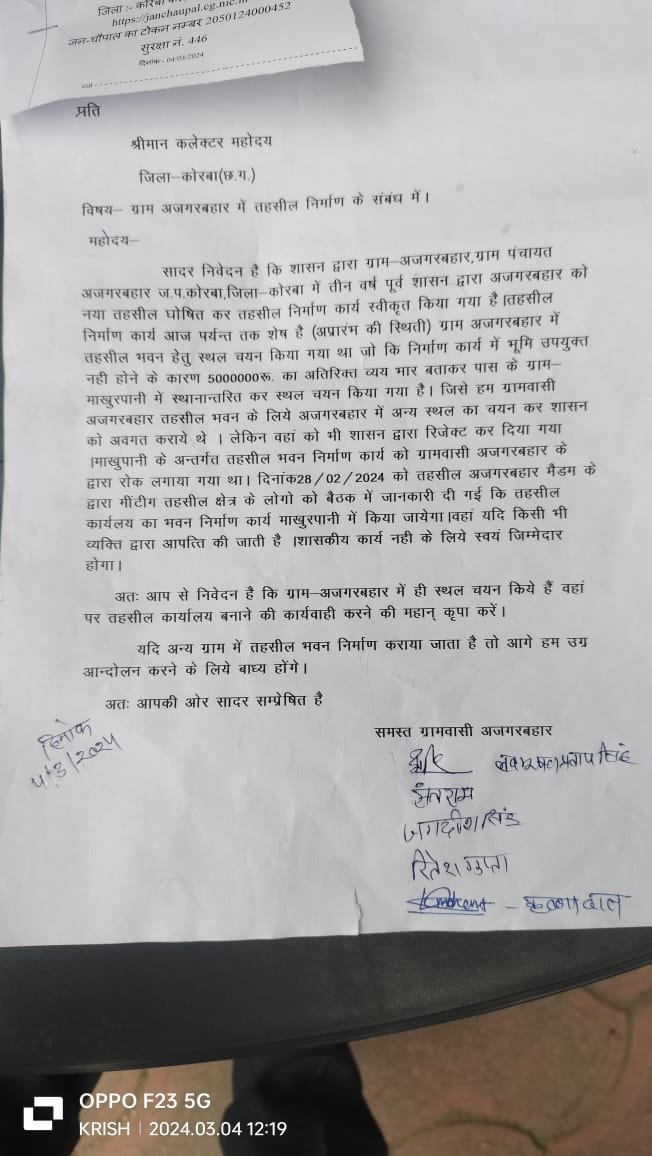 जिला :- कोरबा
https://janchaupal.cg.nic.in
जन-चौपाल का टोकन नम्बर 2050124000452
सुरक्षा नं. 446
दिनांक - 04/03/2024
प्रति
श्रीमान कलेक्टर महोदय
जिला–कोरबा(छ.ग.)
विषय– ग्राम अजगरबहार में तहसील निर्माण के संबंध में।
महोदय–
सादर निवेदन है कि शासन द्वारा ग्राम–अजगरबहार,ग्राम पंचायत
अजगरबहार ज.प.कोरबा,जिला–कोरबा में तीन वर्ष पूर्व शासन द्वारा अजगरबहार को
नया तहसील घोषित कर तहसील निर्माण कार्य स्वीकृत किया गया है।तहसील
निर्माण कार्य आज पर्यन्त तक शेष है (अप्रारंभ की स्थिती) ग्राम अजगरबहार में
तहसील भवन हेतु स्थल चयन किया गया था जो कि निर्माण कार्य में भूमि उपयुक्त
नही होने के कारण 5000000रू. का अतिरिक्त व्यय भार बताकर पास के ग्राम–
माखुरपानी में स्थानान्तरित कर स्थल चयन किया गया है। जिसे हम ग्रामवासी
अजगरबहार तहसील भवन के लिये अजगरबहार में अन्य स्थल का चयन कर शासन
को अवगत कराये थे । लेकिन वहां को भी शासन द्वारा रिजेक्ट कर दिया गया
।माखुपानी के अन्तर्गत तहसील भवन निर्माण कार्य को ग्रामवासी अजगरबहार के
द्वारा रोक लगाया गया था। दिनांक28/02/2024 को तहसील अजगरबहार मैडम के
द्वारा मींटीग तहसील क्षेत्र के लोगो को बैठक में जानकारी दी गई कि तहसील
कार्यलय का भवन निर्माण कार्य माखुरपानी में किया जायेगा।वहां यदि किसी भी
व्यक्ति द्वारा आपत्ति की जाती है ।शासकीय कार्य नही के लिये स्वयं जिम्मेदार
होगा।
अतः आप से निवेदन है कि ग्राम–अजगरबहार में ही स्थल चयन किये हैं वहां
पर तहसील कार्यालय बनाने की कार्यवाही करने की महान् कृपा करें।
यदि अन्य ग्राम में तहसील भवन निर्माण कराया जाता है तो आगे हम उग्र
आन्दोलन करने के लिये बाध्य होंगे।
अतः आपकी ओर सादर सम्प्रेषित है
दिनांक
4/3/2024
समस्त ग्रामवासी अजगरबहार
प्रताप सिंह
जगदीश सिंह
रितेश गुप्ता
OPPO F23 5G
KRISH | 2024.03.04 12:19